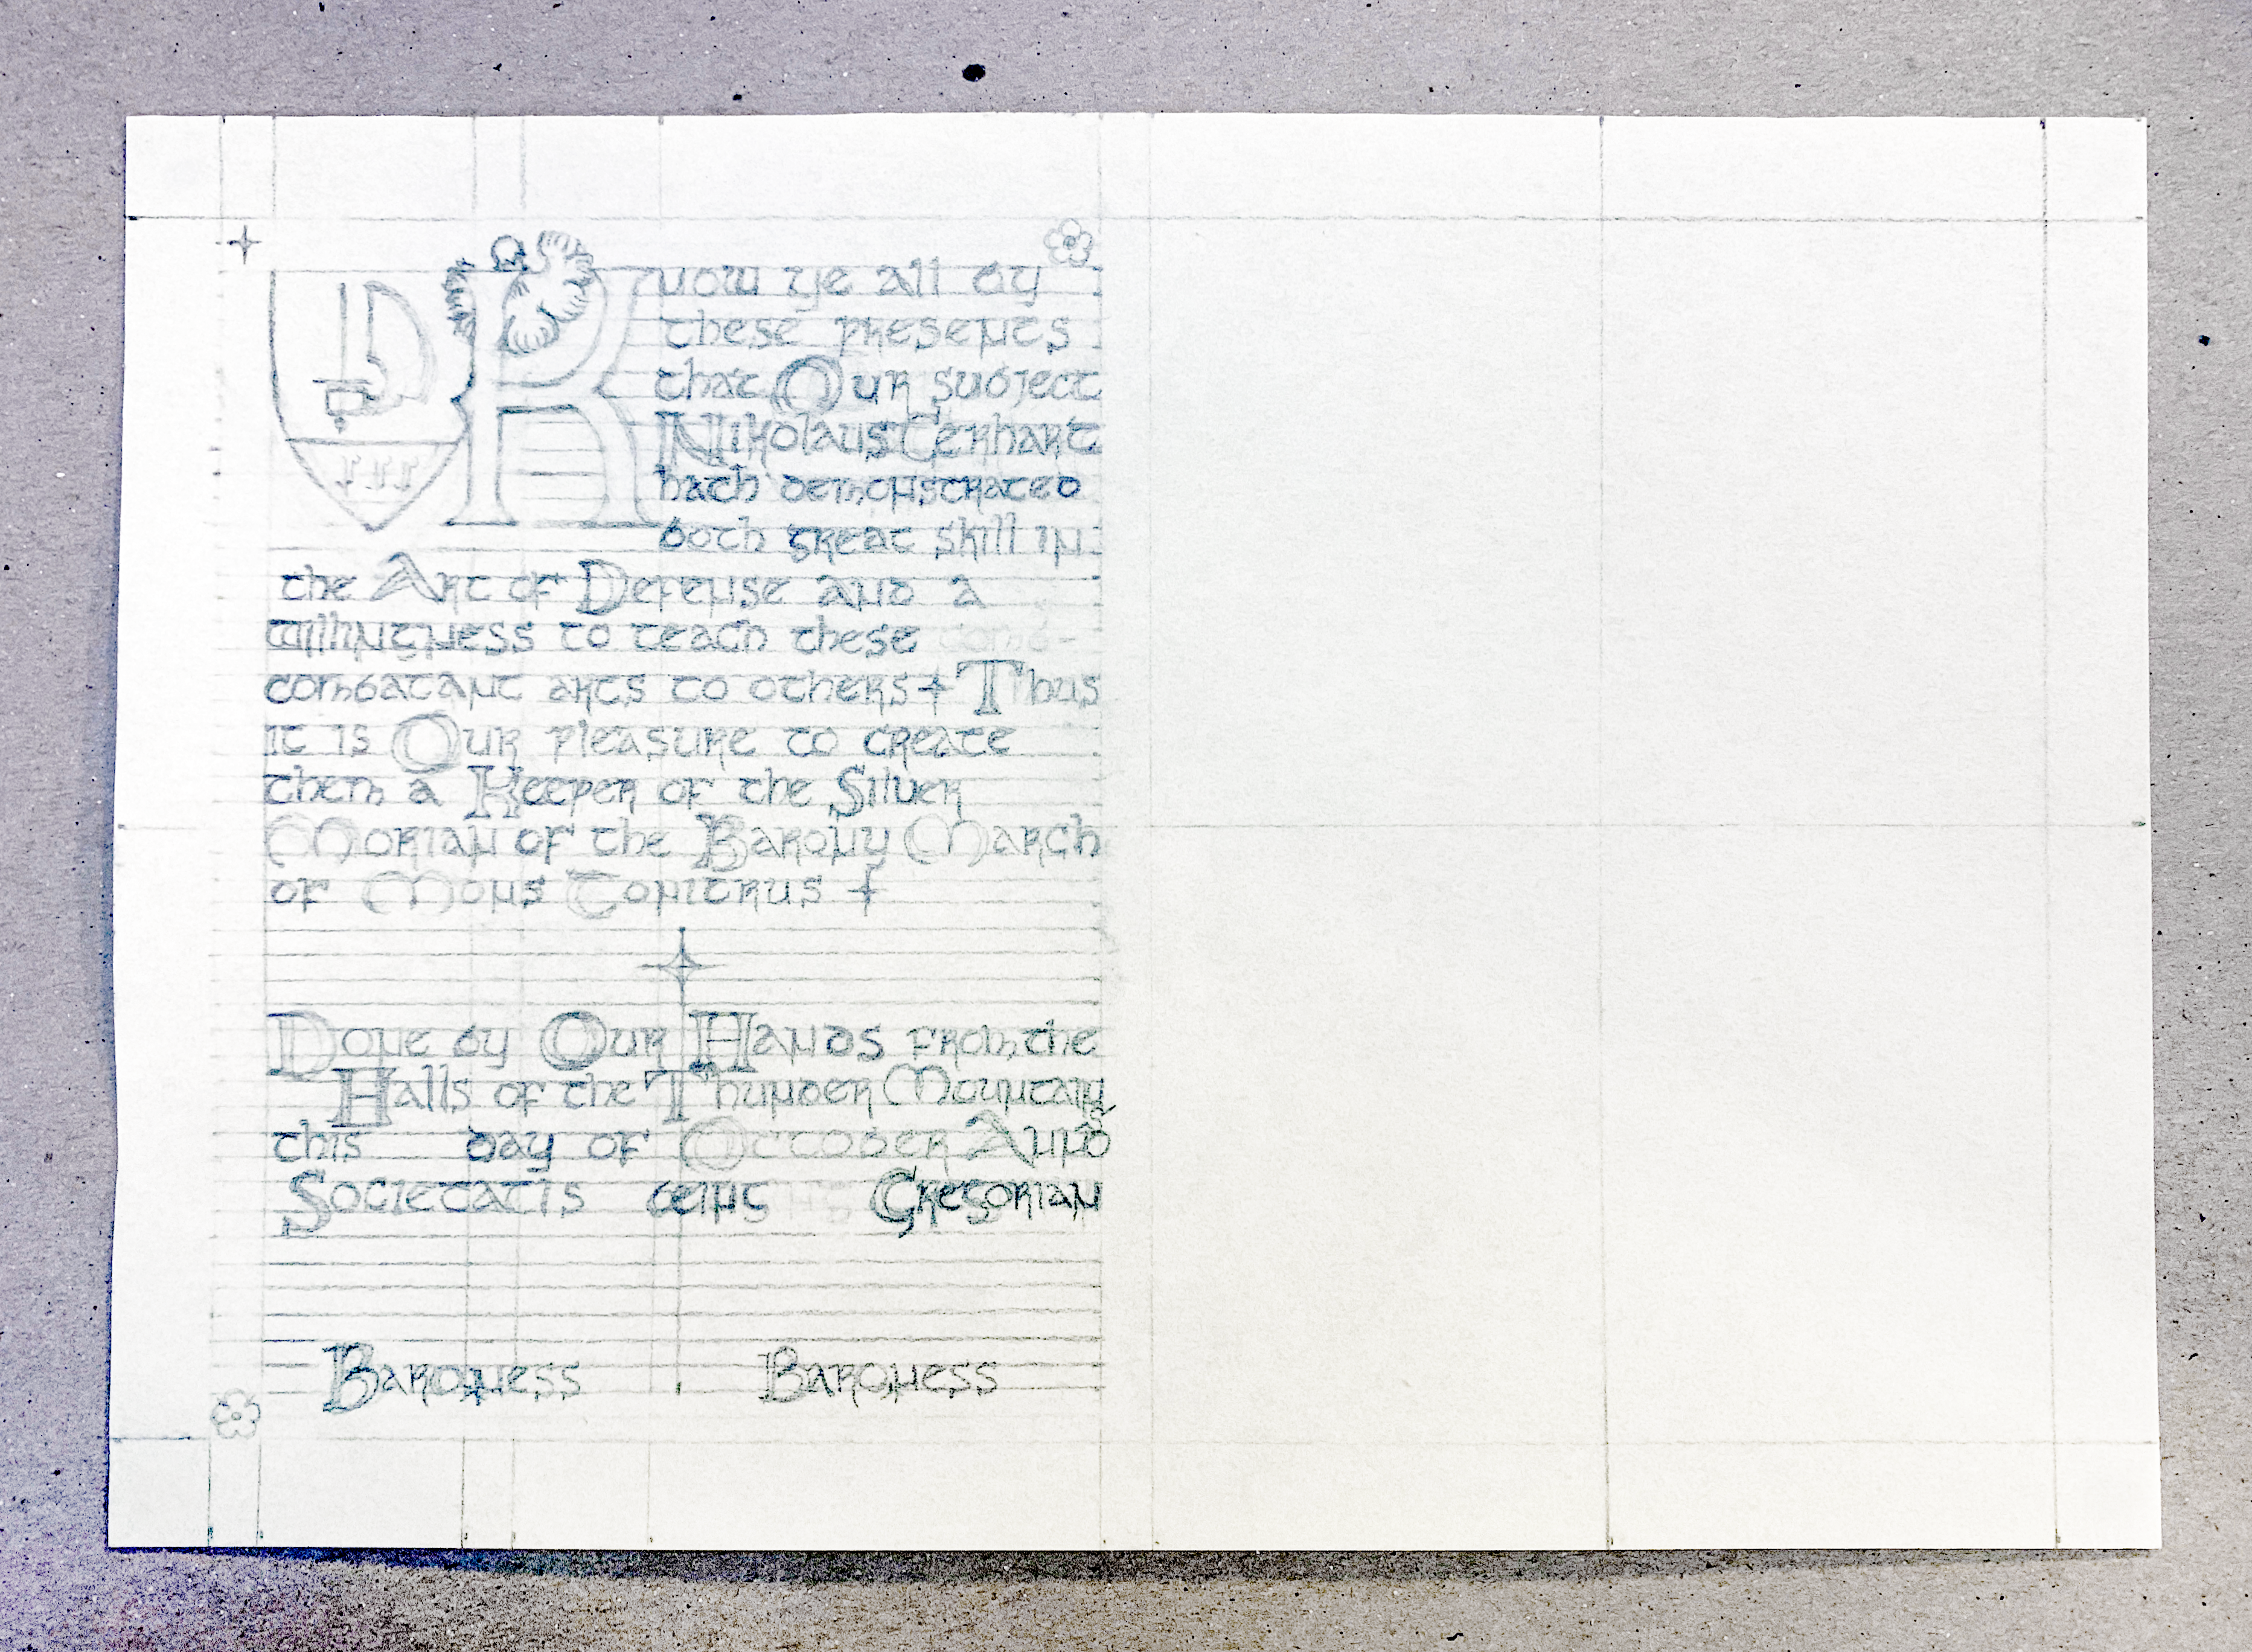 Know ye all by
these presents
that Our subject
Nikolaus Gerhart
hath demonstrated
both great skill in
the Art of Defense and a
willingness to teach these comb-
combatant arts to others + Thus
it is Our pleasure to create
them a Keeper of the Silver
Morian of the Barony March
of Mons Tonitrus +
Done by Our Hands from the
Halls of the Thunder Mountain
this day of October Anno
Societatis being Gregorian
Baroness Baroness